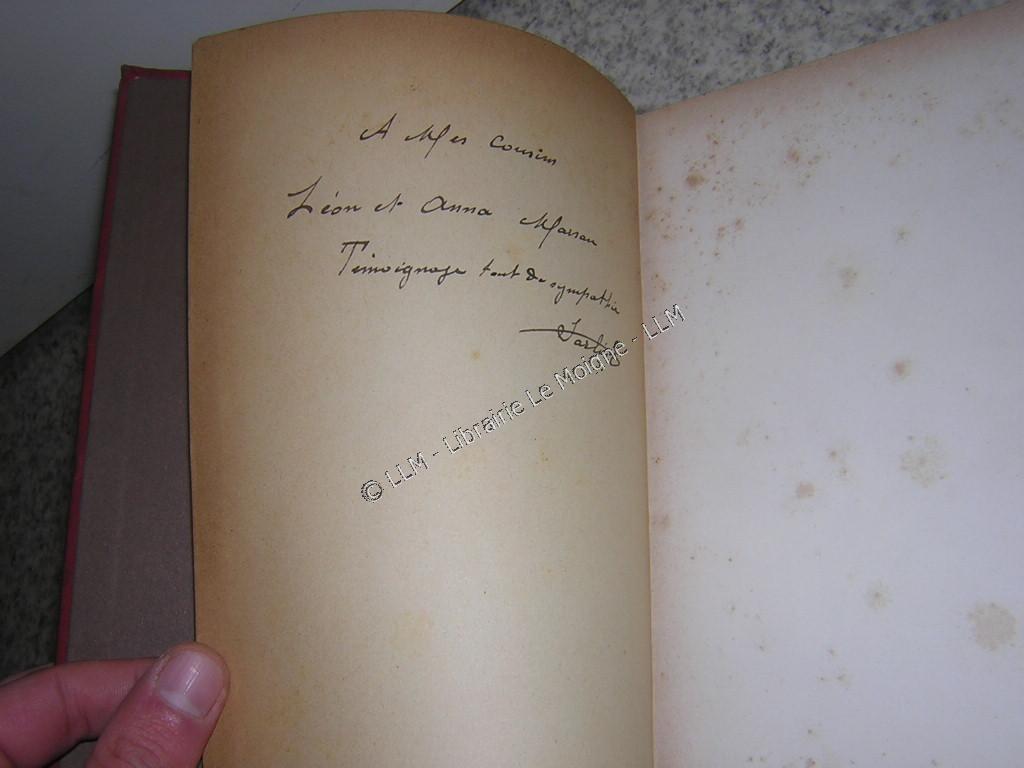 A Mes Cousins
Léon et Anna
Témoignage tout de sympathie
© LLM - Librairie Le Moigne - LLM